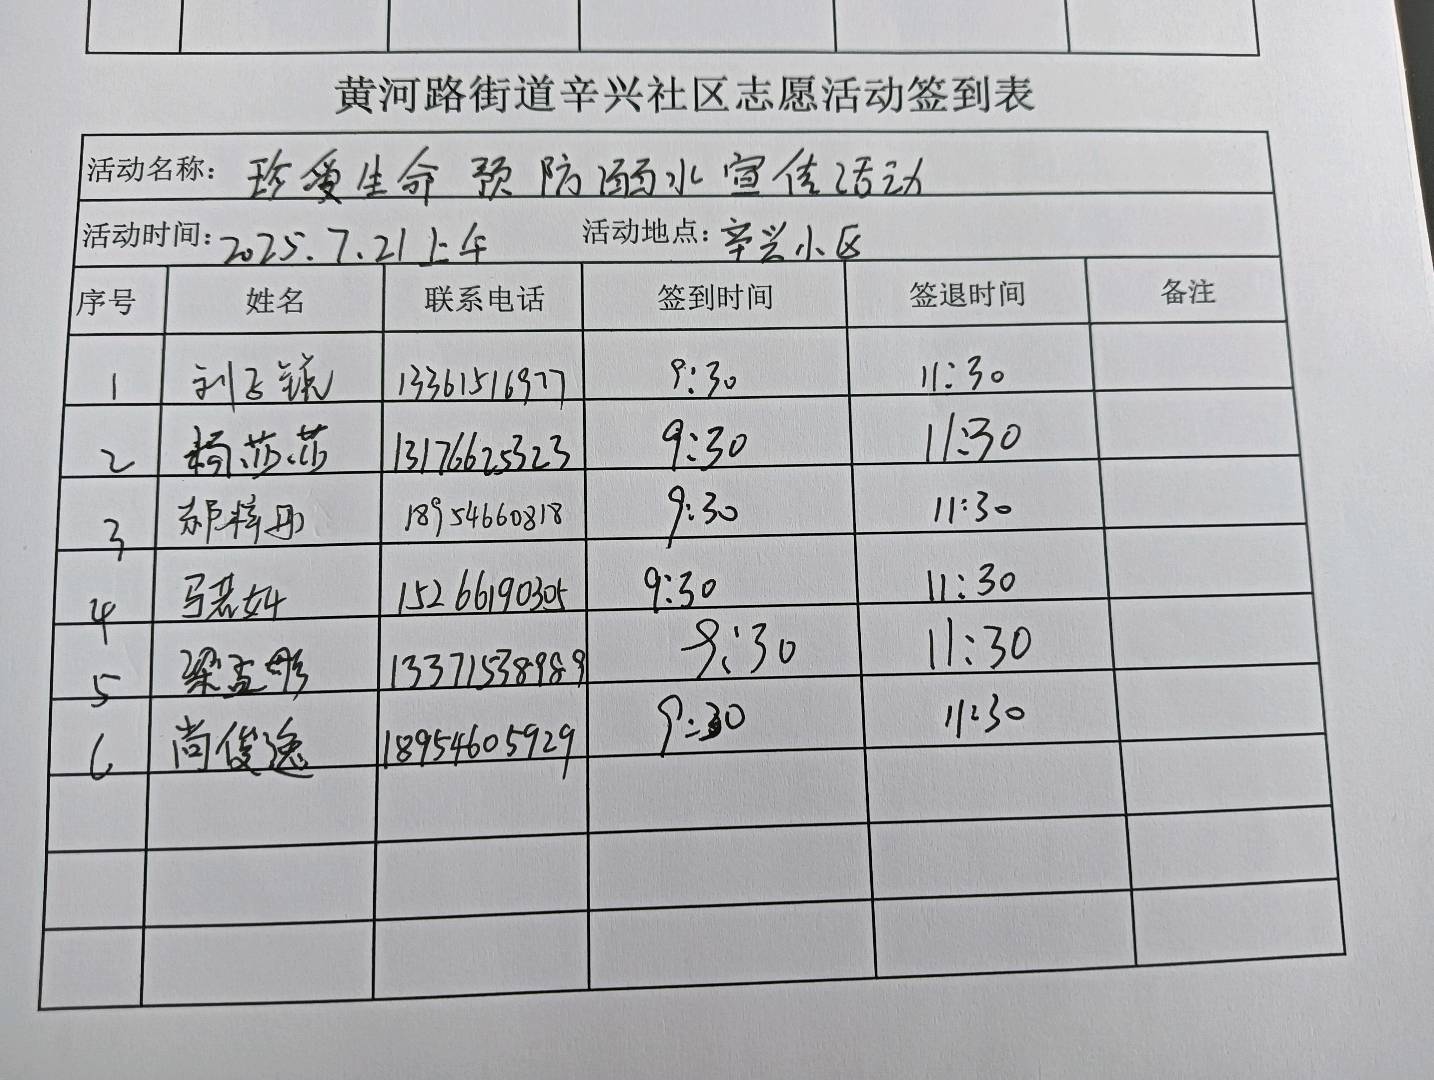 黄河路街道辛兴社区志愿活动签到表
活动名称: 珍爱生命 预防溺水宣传活动
活动时间: 2025.7.21上午 活动地点: 辛兴小区
序号 姓名 联系电话 签到时间 签退时间 备注
1 刘 13361516977 9:30 11:30
2 杨莎莎 13176625323 9:30 11:30
3 郑梓丹 18954660818 9:30 11:30
4 马若 15266190305 9:30 11:30
5 梁孟彤 13371538989 9:30 11:30
6 尚俊逸 18954605929 9:30 11:30